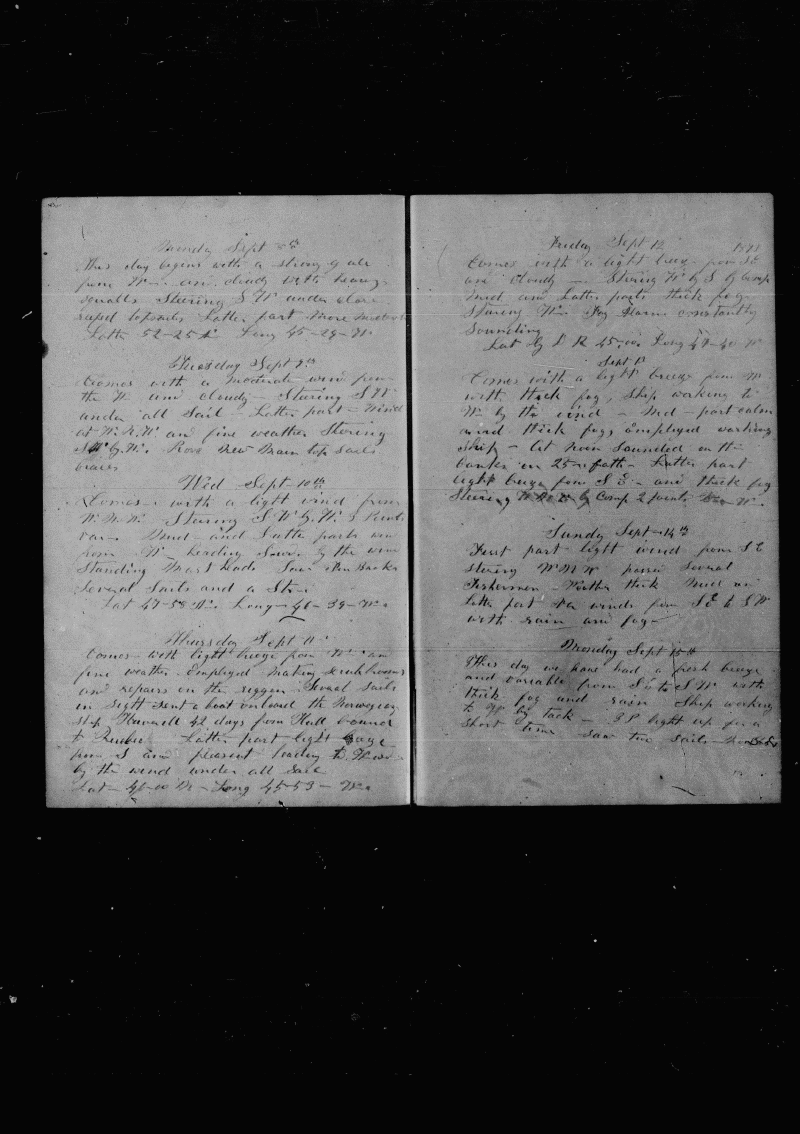 Monday Sept 8th
This day begins with a strong gale
from W and cloudy with heavy
squalls Steering S W under close
reefed topsails Latter part more moderate
Latt 52-25 N Long 35-29-W
Tuesday Sept 9th
Comes with a moderate wind from
the W and cloudy - Steering S W
under all Sail - Latter part - Wind
at W.N.W and fine weather Steering
S W by W. Rove new Main top sail
braces
Wed Sept 10th
Comes - with a light wind from
W.N.W. Steering S W by W. 3 Points
var - Mid - and Latter parts wind
from W - heading South by the wind
Standing Mast heads Saw Fin Backs
Several Sails and a Str
Lat 47-58 N. Long - 40-39-W.
Thursday Sept 11
Comes with light breeze from W and
fine weather Employed making scrub brooms
and repairs on the rigger. Several sails
in Sight Sent a boat onboard the Norwegian
ship 42 days from Hull bound
to Quebec Latter part light
from S and pleasant heading to W
by the wind under all sail
Lat - 46-00 N - Long 45-53 - W.
Friday Sept 12
Comes with a light breeze from S.E
and cloudy - Steering W by S by Comp
mid and Latter parts thick fog
Steering W. Fog Alarm constantly
Sounding
Lat by D R 45.00 Long 47-40 W
Sept 13
Comes with a light breeze from W
with thick fog, Ship working to
W by the wind - Mid - part calm
and thick fog, Employed working
Ship - At Noon Sounded on the
banks in 25 fath - Latter part
light breeze from S E - and thick fog
Steering by Comp 2 points W
Sunday Sept 14th
First part light wind from S E
steering W N W passed Several
Fishermen - Weather thick Mid and
latter part winds from S E to S W
with rain and fog
Monday Sept 15th
This day we have had a fresh breeze
and variable from S to S W with
thick fog and rain Ship working
to W by tack - light up for a
short time Saw two sails